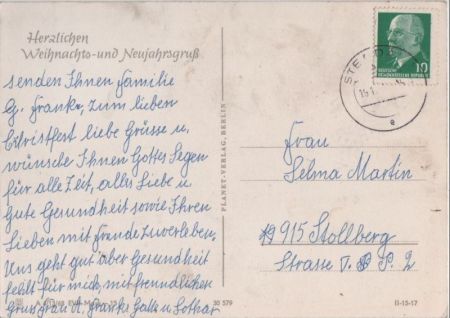 Herzlichen
Weihnachts- und Neujahrsgruß
senden Ihnen Familie
G. Franke, zum lieben
Christfest liebe Grüsse u.
wünsche Ihnen Gottes Segen
für alle Zeit, alles Liebe u
Gute Gesundheit sowie Ihren
Lieben mit Freude zuverleben.
Uns geht gut aber Gesundheit
fehlt für mich, mit freundlichen
Gruss Frau G. Franke u. Lothar
PLANET-VERLAG, BERLIN
30 579
STEN
10
DEUTSCHE
DEMOKRATISCHE REPUBLIK
e
Frau
Selma Martin
915 Stollberg
Strasse
II-15-17